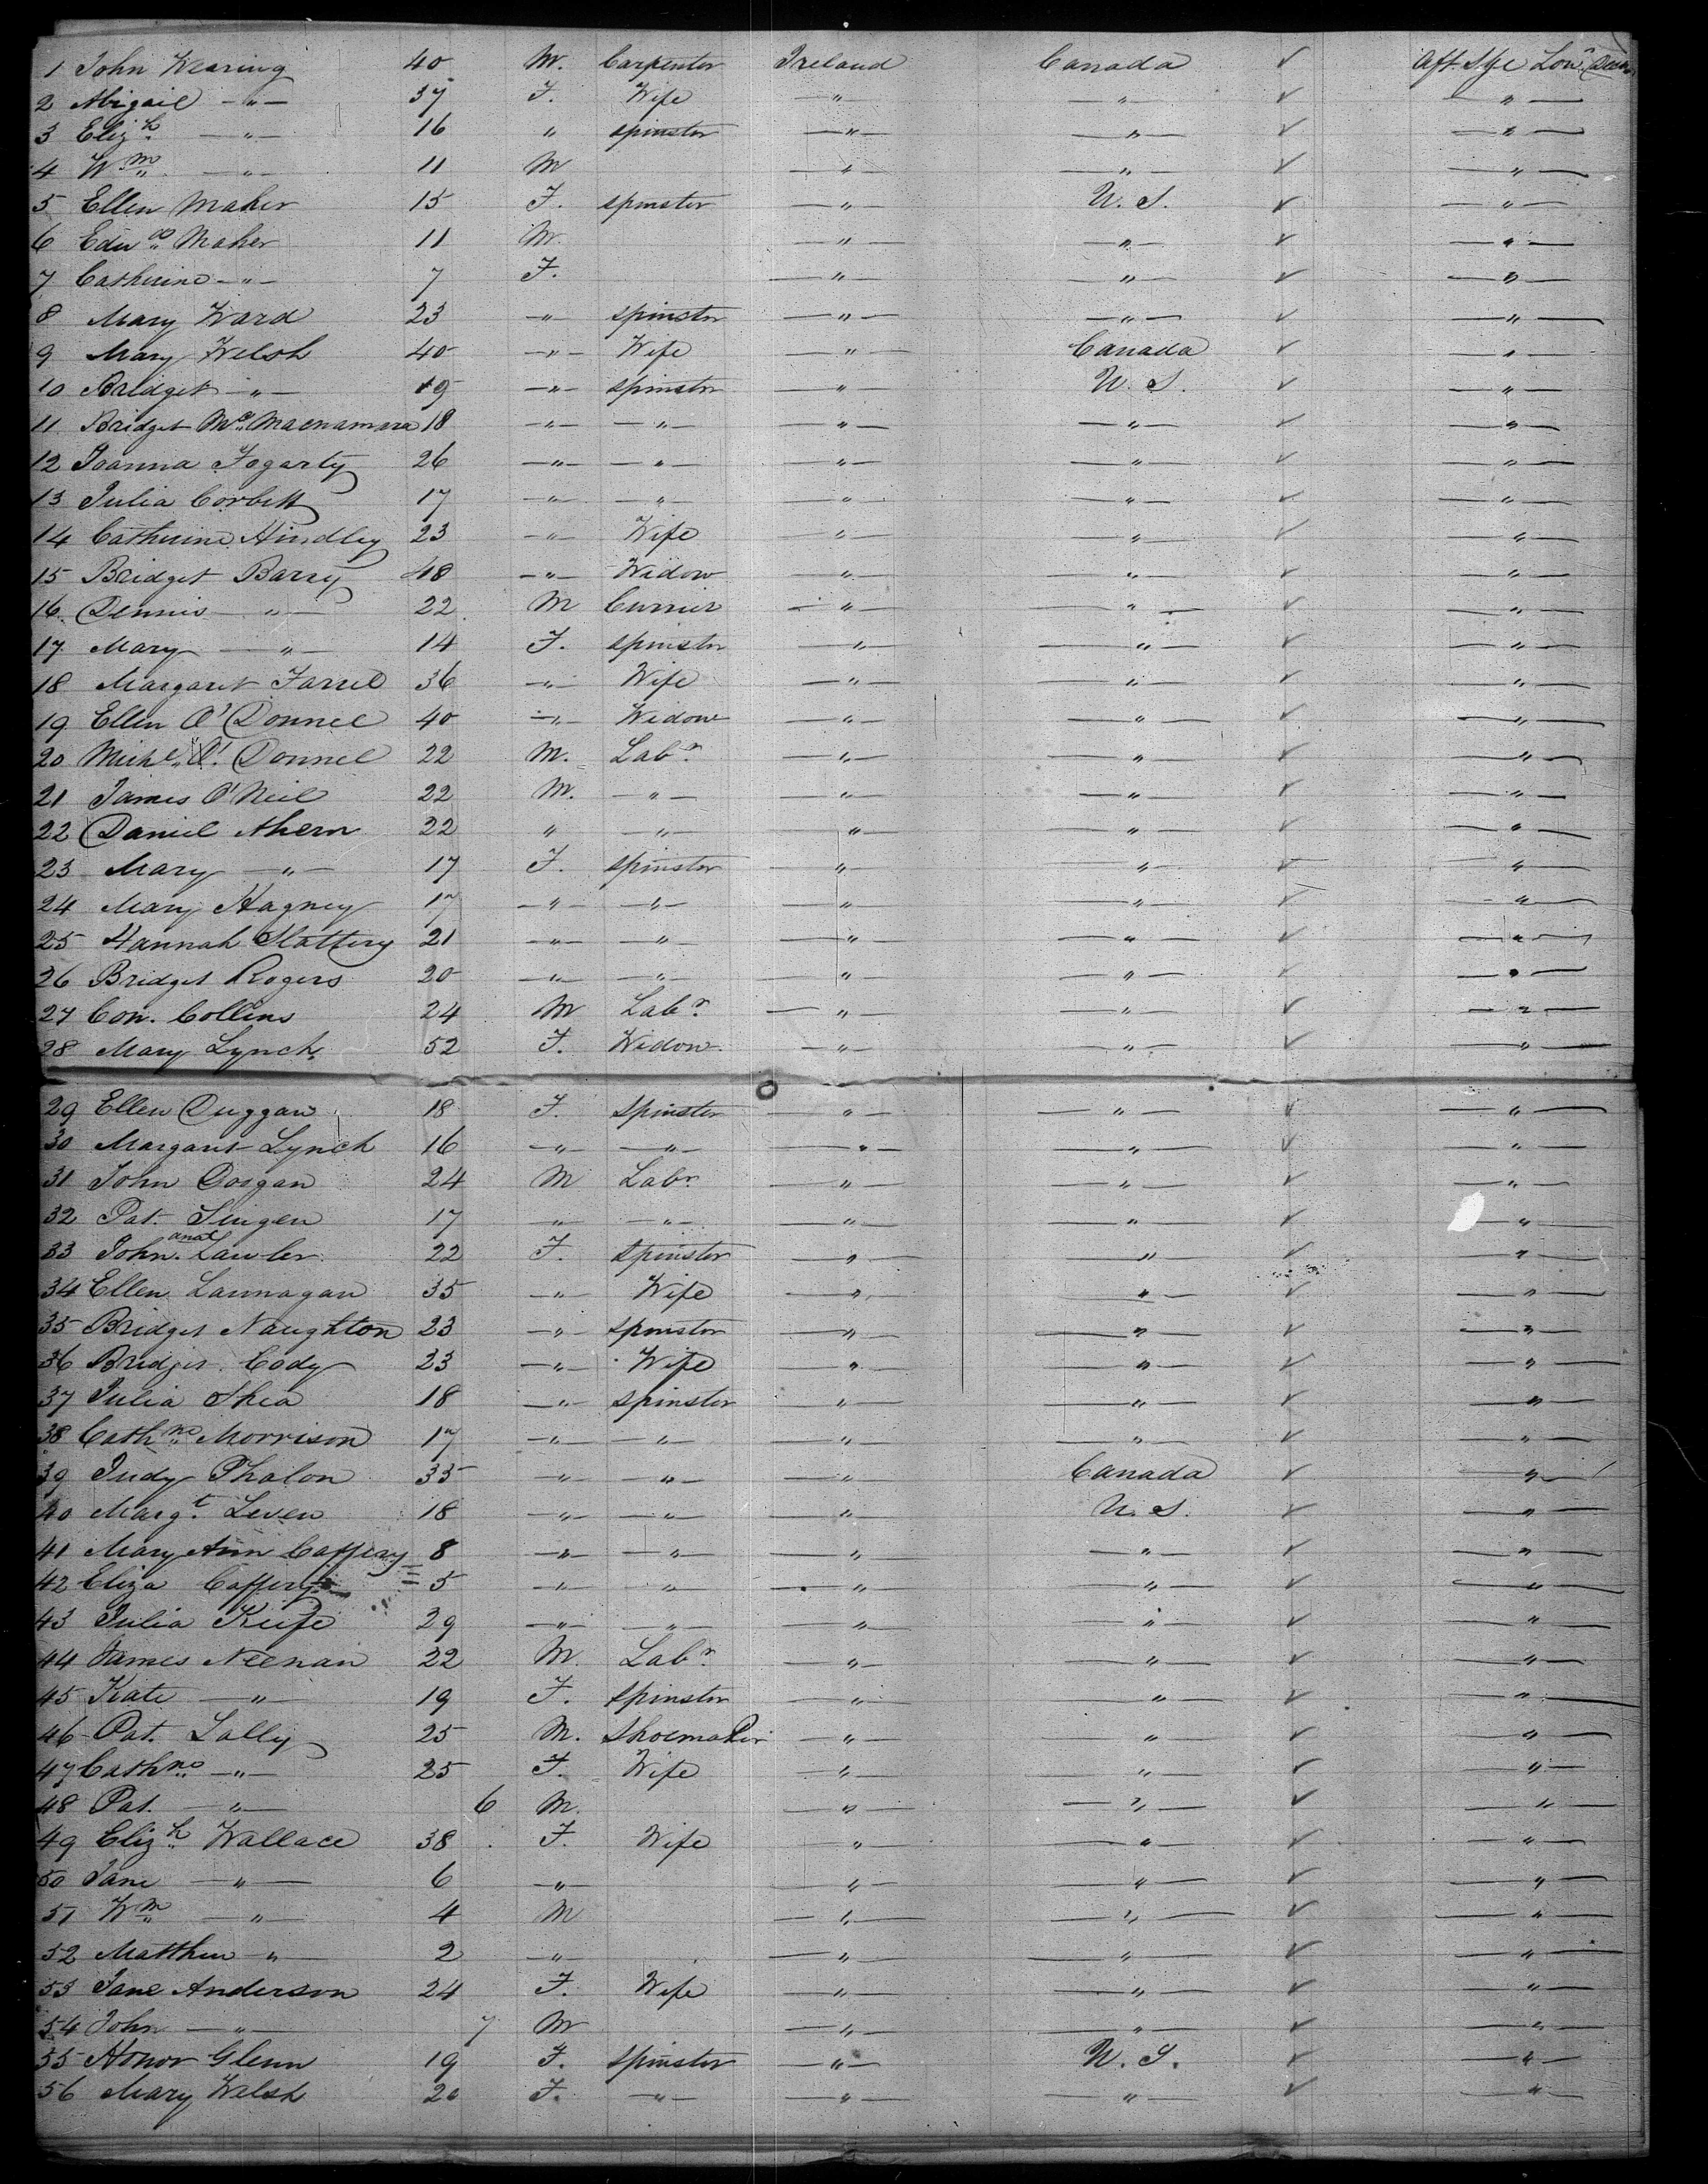 1 John Kearing 40 M. Carpenter Ireland Canada ✓ Aft. Stge Low Deck
2 Abigail —"— 37 F. Wife —"— —"— ✓ —"—
3 Eliz.h —"— 16 " spinster —"— —"— ✓ —"—
4 Wm —"— 11 M —"— —"— ✓ —"—
5 Ellen Maher 15 F. spinster —"— U. S. ✓ —"—
6 Edwd Maher 11 M. —"— —"— ✓ —"—
7 Catherine —"— 7 F. —"— —"— ✓ —"—
8 Mary Ward 23 —"— spinster —"— —"— ✓ —"—
9 Mary Welsh 40 —"— Wife —"— Canada ✓ —"—
10 Bridget —"— 19 —"— spinster —"— U. S. ✓ —"—
11 Bridget Mc Macnamara 18 —"— —"— —"— —"— ✓ —"—
12 Joanna Fogarty 26 —"— —"— —"— —"— ✓ —"—
13 Julia Corbett 17 —"— —"— —"— —"— ✓ —"—
14 Catherine Hindley 23 —"— Wife —"— —"— ✓ —"—
15 Bridget Barry 48 —"— Widow —"— —"— ✓ —"—
16 Dennis —"— 22 M Currier —"— —"— ✓ —"—
17 Mary —"— 14 F. spinster —"— —"— ✓ —"—
18 Margaret Farrel 36 —"— Wife —"— —"— ✓ —"—
19 Ellen O'Donnel 40 —"— Widow —"— —"— ✓ —"—
20 Michl. O'Donnel 22 M. Labr. —"— —"— ✓ —"—
21 James O'Neil 22 M. —"— —"— —"— ✓ —"—
22 Daniel Ahern 22 " —"— —"— —"— ✓ —"—
23 Mary —"— 17 F. spinster —"— —"— ✓ —"—
24 Mary Hagney 17 —"— —"— —"— —"— ✓ —"—
25 Hannah Slattery 21 —"— —"— —"— —"— ✓ —"—
26 Bridget Rogers 20 —"— —"— —"— —"— ✓ —"—
27 Con. Collins 24 M Labr. —"— —"— ✓ —"—
28 Mary Lynch 52 F. Widow —"— —"— ✓ —"—
29 Ellen Duggan 18 F. spinster —"— —"— ✓ —"—
30 Margaret Lynch 16 —"— —"— —"— —"— ✓ —"—
31 John Dorgan 24 M Labr. —"— —"— ✓ —"—
32 Pat. 17 —"— —"— —"— —"— ✓ —"—
33 John anah Lawler 22 F. spinster —"— —"— ✓ —"—
34 Ellen Lannagan 35 —"— Wife —"— —"— ✓ —"—
35 Bridget Naughton 23 —"— spinster —"— —"— ✓ —"—
36 Bridget Cody 23 —"— Wife —"— —"— ✓ —"—
37 Julia Shea 18 —"— spinster —"— —"— ✓ —"—
38 Cathne Morrison 17 —"— —"— —"— —"— ✓ —"—
39 Judy Phalon 35 —"— —"— —"— Canada ✓ —"—
40 Margt. Leven 18 —"— —"— —"— U. S. ✓ —"—
41 Mary Ann Caffery 8 —"— —"— —"— —"— ✓ —"—
42 Eliza Caffery 5 —"— —"— —"— —"— ✓ —"—
43 Julia Keefe 29 —"— —"— —"— —"— ✓ —"—
44 James Neenan 22 M. Labr. —"— —"— ✓ —"—
45 Kate —"— 19 F. spinster —"— —"— ✓ —"—
46 Pat. Lally 25 M. Shoemaker —"— —"— ✓ —"—
47 Cathne —"— 25 F. Wife —"— —"— ✓ —"—
48 Pat. —"— 6 M. —"— —"— ✓ —"—
49 Elizh Wallace 38 F. Wife —"— —"— ✓ —"—
50 Jane —"— 6 —"— —"— —"— ✓ —"—
51 Wm —"— 4 M —"— —"— ✓ —"—
52 Matthew —"— 2 —"— —"— —"— ✓ —"—
53 Jane Anderson 24 F. Wife —"— —"— ✓ —"—
54 John —"— 7 M —"— —"— ✓ —"—
55 Honor Glenn 19 F. spinster —"— U. S. ✓ —"—
56 Mary Welsh 20 F. —"— —"— —"— ✓ —"—